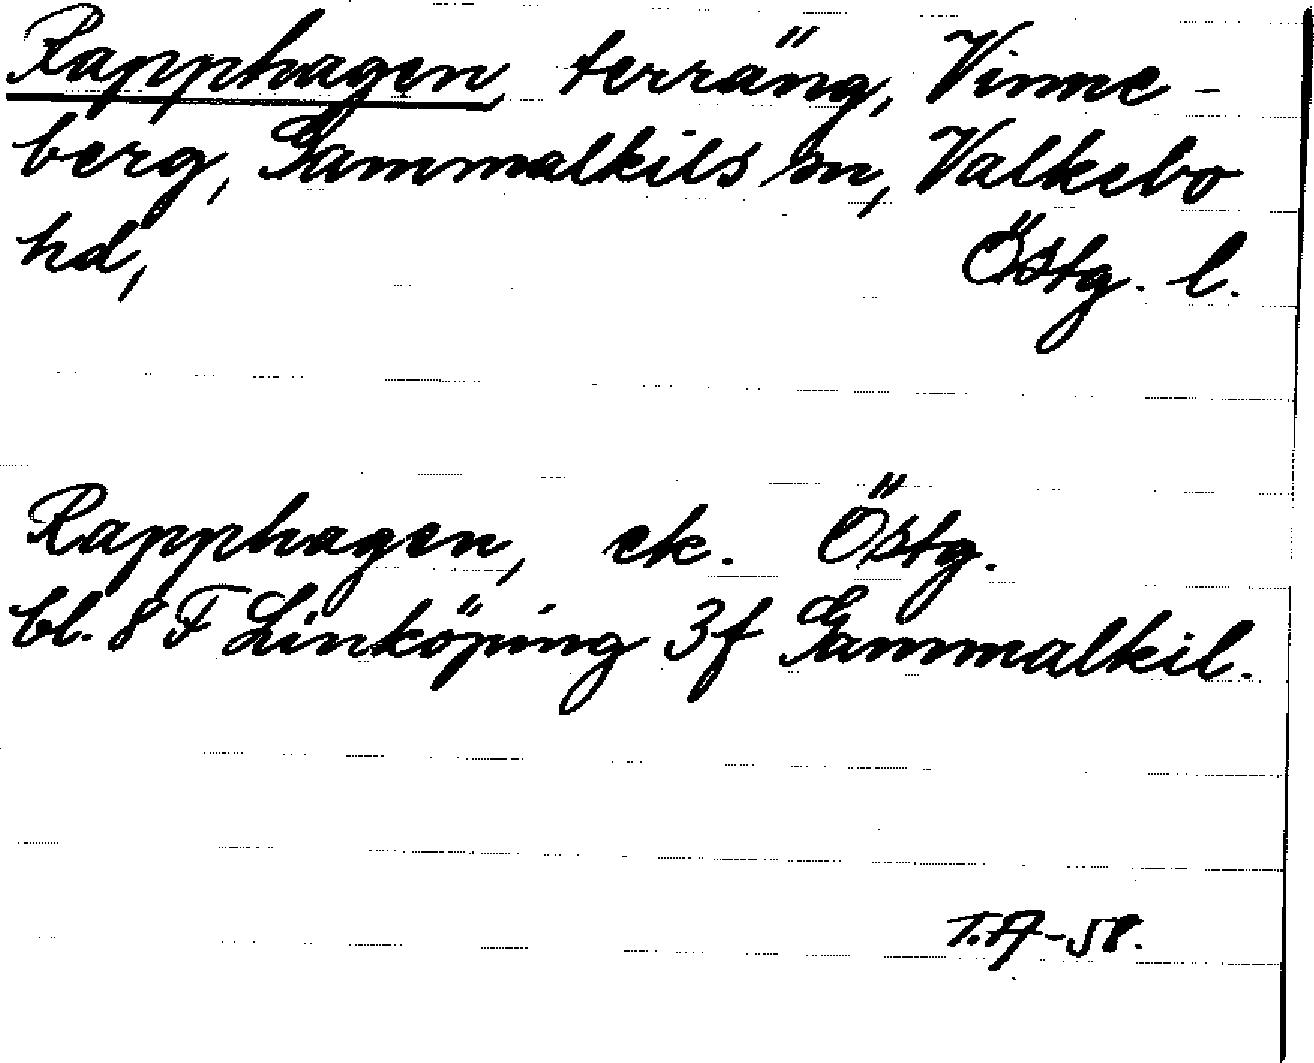 Rapphagen, terräng, Vinne-
berg, Gammalkils sn, Valkebo
hd, Östg. l.
Rapphagen, ek. Östg.
bl. 8 F Linköping 3f Gammalkil.
T.A-58.